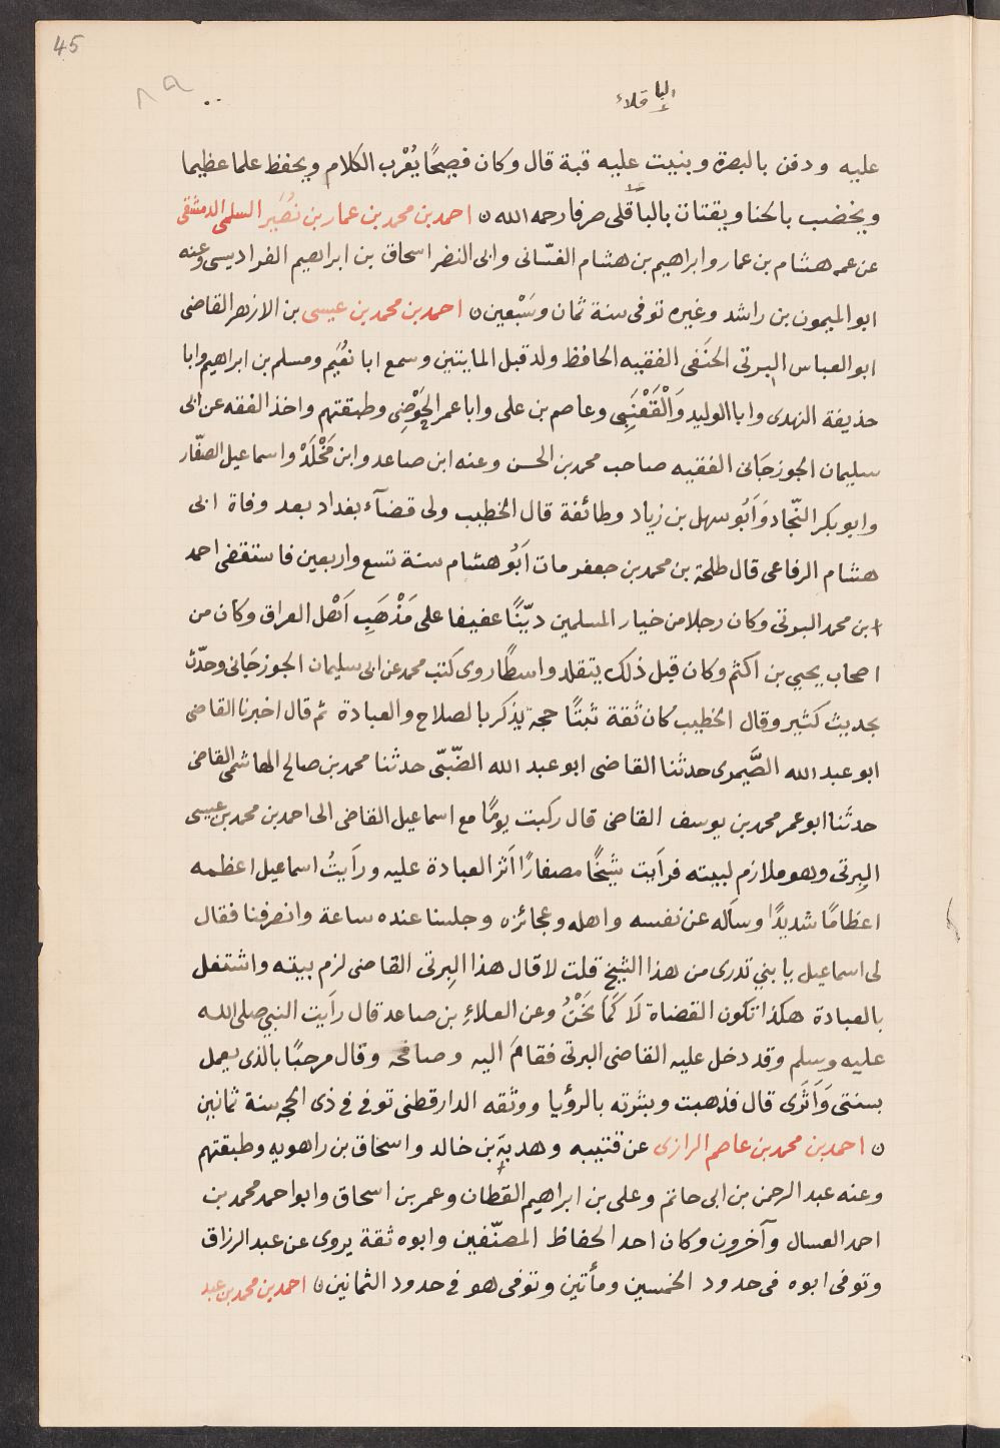 45
٨٩
الباقلاء
عليه ودفن بالبصرة وبنيت عليه قبة قال وكان فصيحًا يُعْرب الكلام ويحفظ علما عظيما
ويخضب بالحنا ويقتات بالباقلى صرفا رحمه الله ن احمد بن محمد بن عمار بن نُصَير السلمى الدمشقى
عن عمه هشام بن عمار وابراهيم بن هشام الغسّانى وابى النضر اسحاق بن ابراهيم الفراديسى وعنه
ابو الميمون بن راشد وغيره توفى سنة ثمان وسَبْعين ن احمد بن محمد بن عيسى بن الازهر القاضى
ابو العباس البرتى الحنَفى الفقيه الحافظ ولد قبل المايتين وسمع ابا نعَُيم ومسلم بن ابراهيم وابا
حذيفة النهدى وابا الوليد وَالْقَعْنَبِى وعاصم بن على وابا عمر الحَوْضِى وطبقتهم واخذ الفقه عن ابى
سليمان الجوزجَانى الفقيه صاحب محمد بن الحسن وعنه ابن صاعد وابن مَخْلَدْ واسماعيل الصفّار
وابو بكر النّجاد وَاَبُو سهل بن زياد وطائفة قال الخطيب ولى قضآء بغداد بعد وفاة ابى
هشام الرفاعى قال طلحة بن محمد بن جعفر مات اَبُو هشام سنة تسع واربعين فاستقضى احمد
ابن محمد البوتى وكان رجلا من خيار المسلمين ديّنًا عفيفا على مَذْهَبِ اَهْل العراق وكان من
اصحاب يحيى بن اكثم وكان قبل ذلك يتقلد واسطًا روى كتب محمد عن ابى سليمان الجوزجَانى وحدّث
بحديث كثير وقال الخطيب كان ثقة ثبتًا حجة يذكر بالصلاح والعبادة ثم قال اخبرنا القاضى
ابو عبد الله الصَّيمرى حدثنا القاضى ابو عبد الله الضّبّى حدثنا محمد بن صالح الهاشمى القاضى
حدثنا ابو عمر محمد بن يوسف القاضى قال ركبت يومًا مع اسماعيل القاضى الى احمد بن محمد بن عيسى
البِرتى وهو ملازم لبيته فرأيت شيخًا مصفارًا اَثر العبادة عليه ورأيتُ اسماعيل اعظمه
اعظامًا شديدًا وساَله عن نفسه واهله وعجائزه وجلسنا عنده ساعة وانصرفنا فقال
لى اسماعيل يا بني تدرى من هذا الشيخ قلت لا قال هذا البِرتى القاضى لزم بيته واشتغل
بالعبادة هكذا تكون القضاة لَا كَمَا نَحْنُ وعن العلاءِ بن صاعد قال رأيت النبي صلى الله
عليه وسلم وقد دخل عليه القاضى البرتى فقامَ اليه وصافحه وقال مرحبًا بالذى يعمل
بسنتى وَاَثَرى قال فذهبت وبشرته بالرؤيا ووثقه الدارقطنى توفى فى ذى الحجة سنة ثمانين
ن احمد بن محمد بن عاصم الرازى عن قتيبه وهدبة بن خالد واسحاق بن راهويه وطبقتهم
وعنه عبد الرحمن بن ابى حاتم وعلى بن ابراهيم القطان وعمر بن اسحاق وابو احمد محمد بن
احمد العسال وآخرون وكان احد الحفاظ المصنّفين وابوه ثقة يروى عن عبد الرزاق
وتوفى ابوه فى حدود الخمسين ومأتين وتوفى هو فى حدود الثمانين ن احمد بن محمد بن عبد